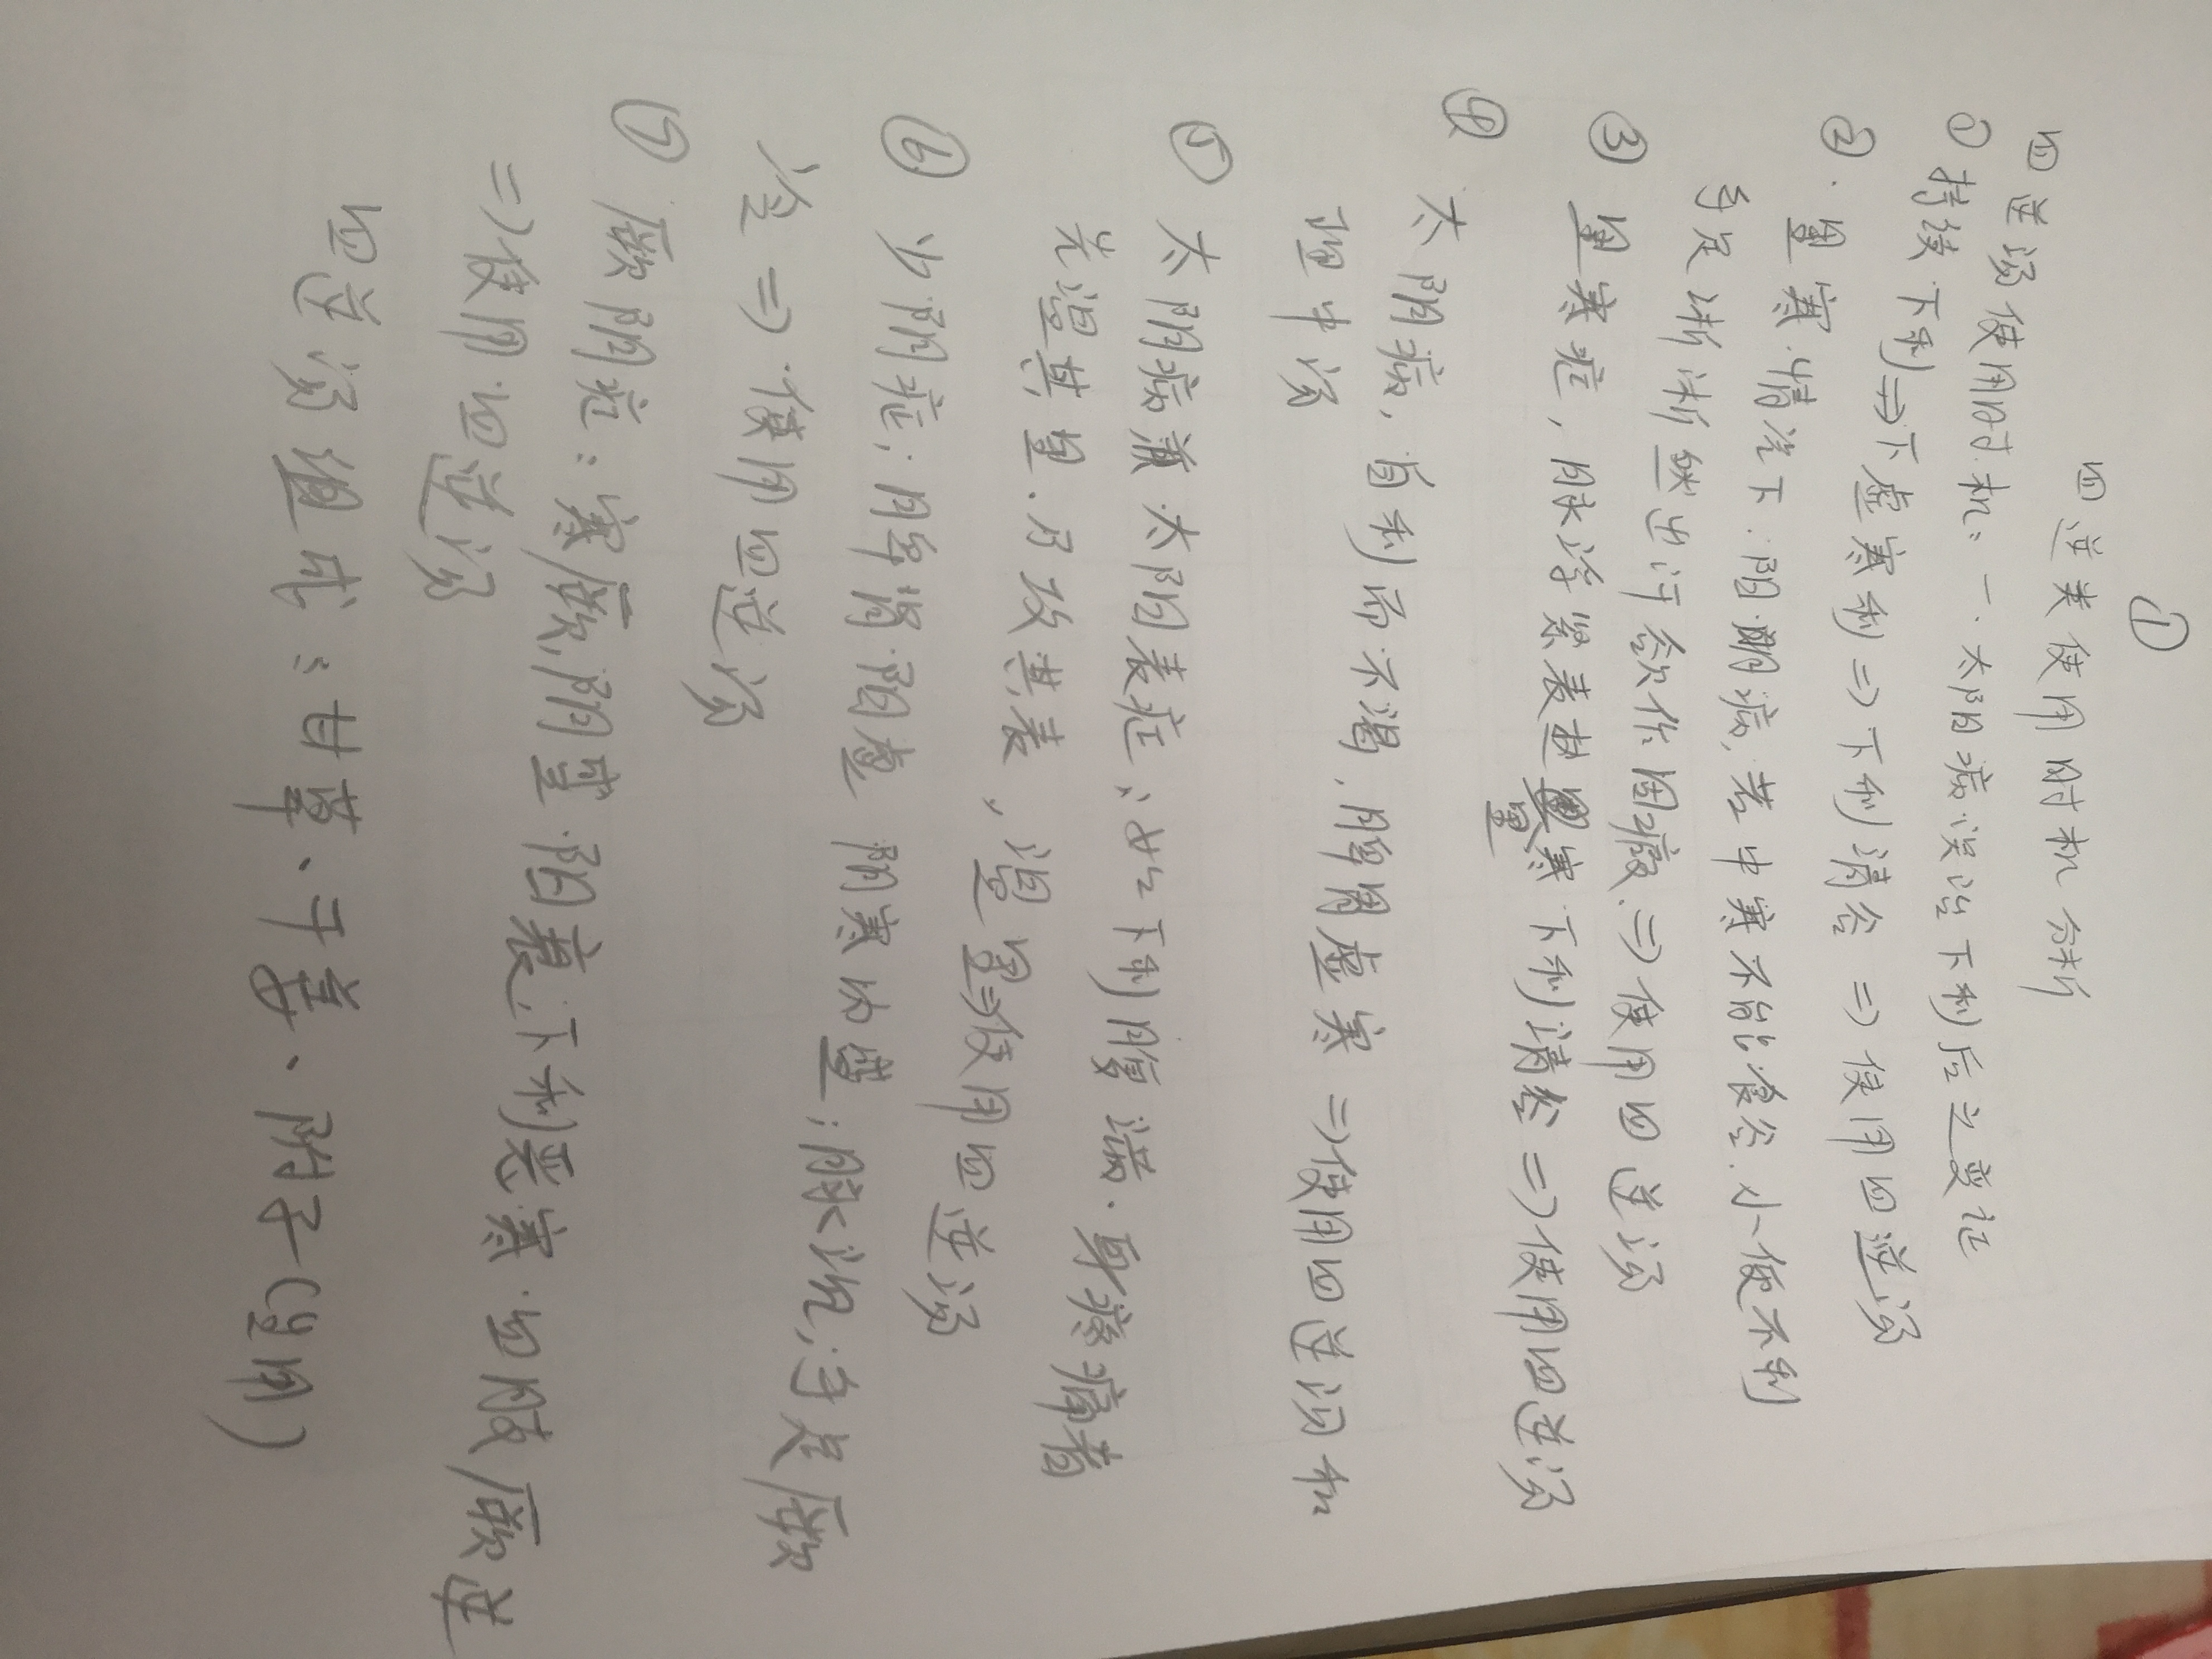 ①
四逆类使用时机分析
四逆汤使用时机、一、太阳病误治下利后之变症
① 持续下利⇒下虚寒利⇒下利清谷 ⇒使用四逆汤
②. 里寒情况下:阳明病,若中寒不能食谷.小便不利
手足濈濈然出汗欲作固瘕.⇒使用四逆汤
③ 里寒症,脉浮紧表热里寒下利清谷⇒使用四逆汤
里
④ 太阴病,自利而不渴.脾胃虚寒⇒使用四逆汤和
理中汤
⑤ 太阴病兼太阳表症:如下利腹满.身疼痛者
先温其里.乃攻其表,温里⇒使用四逆汤
⑥ 少阴症:脾肾阳虚 阴寒内盛:脉沉,手足厥
冷⇒使用四逆汤
⑦ 厥阴症:寒厥,阴盛阳衰,下利恶寒.四肢厥逆
⇒使用四逆汤
四逆汤组成:甘草、干姜、附子(生用)